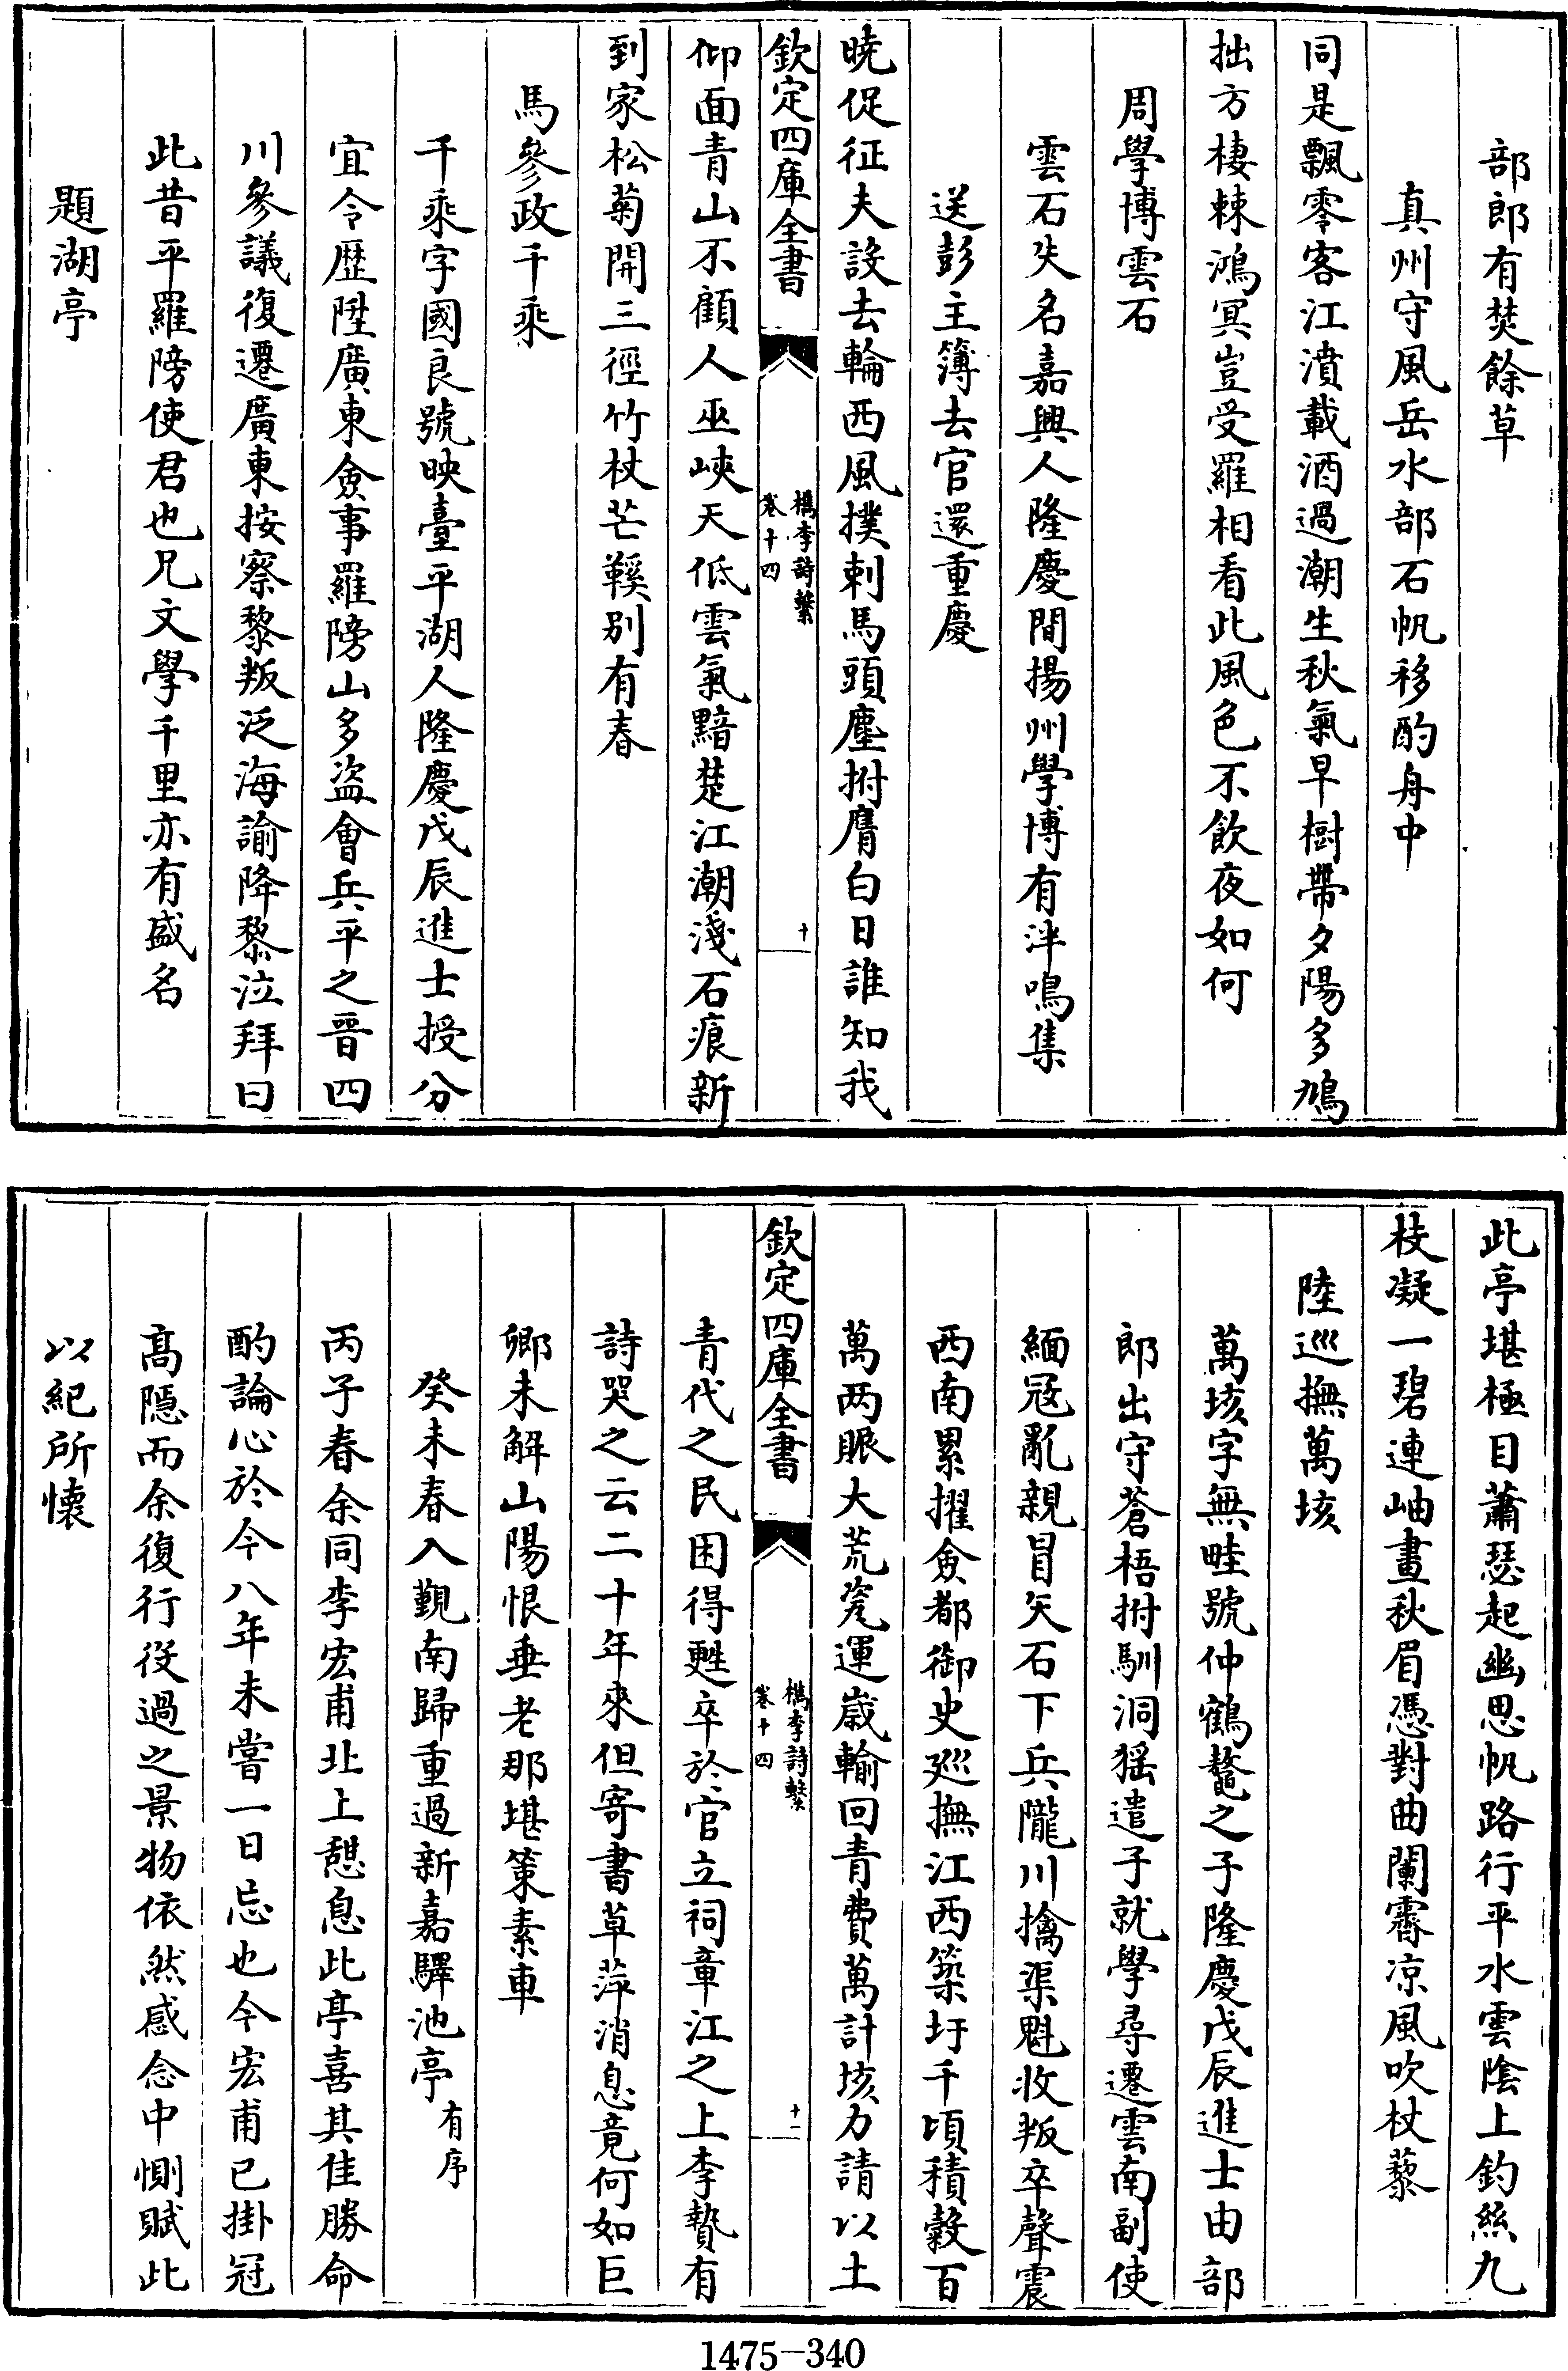 部郎有焚餘草
真州守風岳水部石帆移酌舟中
同是飄零客江濆載酒過潮生秋氣早樹帶夕陽多鳩
拙方棲棘鴻冥豈受羅相看此風色不飲夜如何
周學博雲石
雲石失名嘉興人隆慶間揚州學博有泮鳴集
送彭主簿去官還重慶
曉促征夫設去輪西風撲刺馬頭塵拊膺白日誰知我
欽定四庫全書
檇李詩繫
卷十四
十
仰面青山不顧人巫峽天低雲氣黯楚江潮淺石痕新
到家松菊開三徑竹杖芒鞵別有春
馬參政千乘
千乘字國良號映臺平湖人隆慶戊辰進士授分
宜令歷陞廣東僉事羅滂山多盜會兵平之晉四
川參議復遷廣東按察黎叛泛海諭降黎泣拜曰
此昔平羅滂使君也兄文學千里亦有盛名
題湖亭
此亭堪極目蕭瑟起幽思帆路行平水雲陰上釣絲九
枝凝一碧連岫畫秋眉憑對曲闌霽涼風吹杖藜
陸巡撫萬垓
萬垓字無畦號仲鶴鼇之子隆慶戊辰進士由部
郎出守蒼梧拊馴洞猺遣子就學尋遷雲南副使
緬冦亂親冒矢石下兵隴川擒渠魁收叛卒聲震
西南累擢僉都御史廵撫江西築圩千頃積穀百
萬两賑大荒瓷運歲輸回青費萬計垓力請以土
欽定四庫全書
檇李詩繫
卷十四
十一
青代之民困得甦卒於官立祠章江之上李贄有
詩哭之云二十年來但寄書草萍消息竟何如巨
卿未解山陽恨垂老那堪策素車
癸未春入覲南歸重過新嘉驛池亭有序
丙子春余同李宏甫北上憩息此亭喜其佳勝命
酌論心於今八年未嘗一日忘也今宏甫已掛冠
高隱而余復行役過之景物依然感念中惻賦此
以紀所懷
1475-340